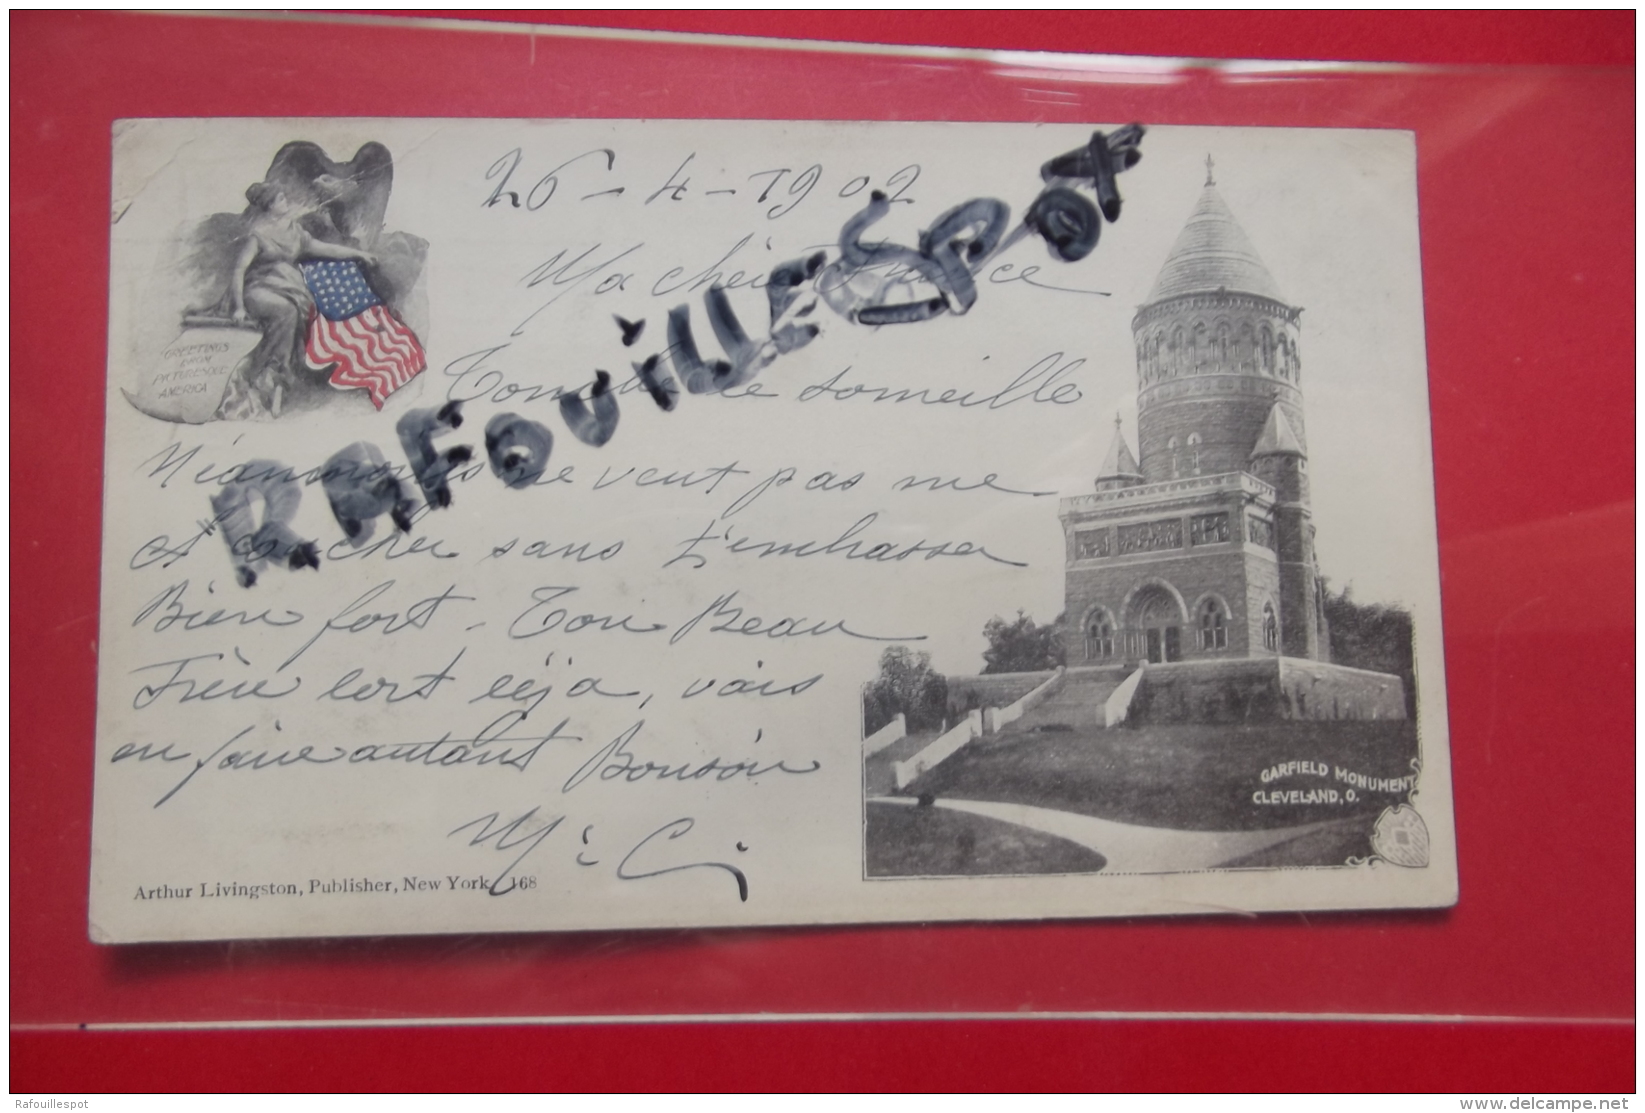 26 - 4 - 1902
Ma chère France
GREETINGS
FROM
PICTURESQUE
AMERICA
Tombe de someille
Néanmoins ne veut pas me
coucher sans t'embrasser
Bien fort - Ton Beau
Frère dort déjà, vais
en faire autant Bonsoir
M. C.
RAFOUILLESPOT
GARFIELD MONUMENT
CLEVELAND, O.
Arthur Livingston, Publisher, New York. 168
Rafouillespot
delcampe.net